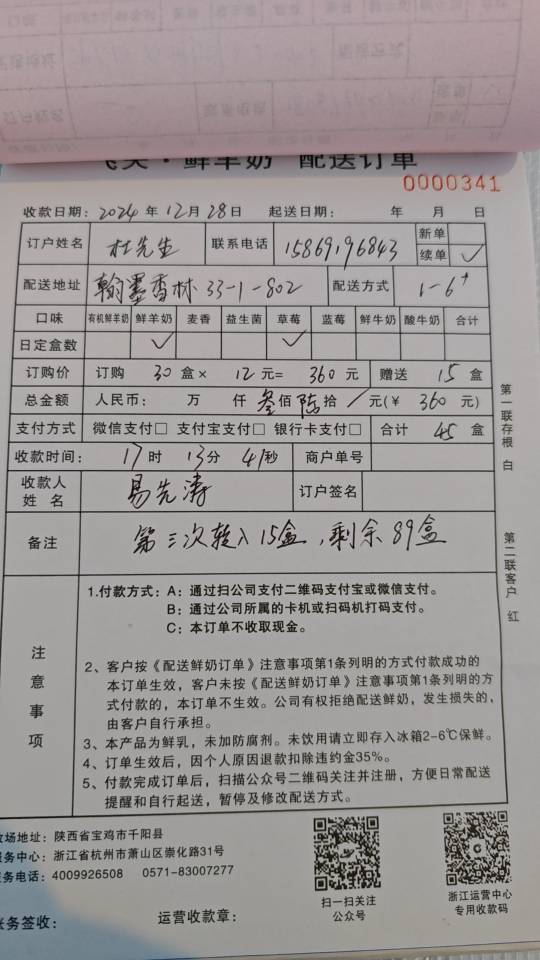 ·鲜羊奶 配送订单
0000341
收款日期：2024年12月28日 起送日期： 年 月 日
订户姓名 杜先生 联系电话 15869196843 新单
续单 ✓
配送地址 翰墨香林 33-1-802 配送方式 1-6
口味 有机鲜羊奶 鲜羊奶 麦香 益生菌 草莓 蓝莓 鲜牛奶 酸牛奶 合计
日定盒数 ✓ ✓
订购价 订购 30 盒× 12元= 360 元 赠送 15 盒
总金额 人民币： 万 仟 叁佰 陆拾 / 元(￥ 360 元)
支付方式 微信支付□ 支付宝支付□ 银行卡支付□ 合计 45 盒
收款时间： 17时 13分 41秒 商户单号
收款人姓名 易先涛 订户签名
备注 第三次转入15盒，剩余89盒
第一联存根 白
第二联客户 红
注意事项
1.付款方式：A：通过扫公司支付二维码支付宝或微信支付。
B：通过公司所属的卡机或扫码机打码支付。
C：本订单不收取现金。
2、客户按《配送鲜奶订单》注意事项第1条列明的方式付款成功的
本订单生效，客户未按《配送鲜奶订单》注意事项第1条列明的方
式付款的，本订单不生效。公司有权拒绝配送鲜奶，发生损失的，
由客户自行承担。
3、本产品为鲜乳，未加防腐剂。未饮用请立即存入冰箱2-6℃保鲜。
4、订单生效后，因个人原因退款扣除违约金35%。
5、付款完成订单后，扫描公众号二维码关注并注册，方便日常配送
提醒和自行起送，暂停及修改配送方式。
牧场地址：陕西省宝鸡市千阳县
服务中心：浙江省杭州市萧山区崇化路31号
服务电话：4009926508 0571-83007277
扫一扫关注
公众号
浙江运营中心
专用收款码
账务签收： 运营收款章：